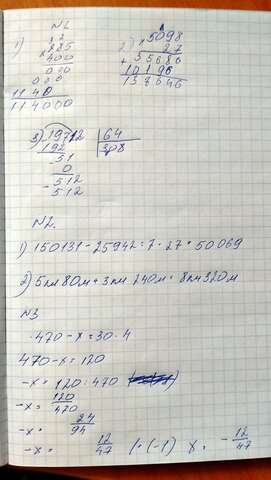 N1.
1) × 285
400
000
000
1140
114000
2) × 5098
27
+ 35686
10196
137646
3) 19712 | 64
192 | 308
- 51
0
- 512
512
N2.
1) 150131 - 25942 : 7 · 27 = 50069
2) 5км 80м + 3км 240м = 8км 320м
N3
470 - x = 30 · 4
470 - x = 120
-x = 120 : 470
-x = 120/470
-x = 24/94
-x = 12/47 | · (-1) x = - 12/47